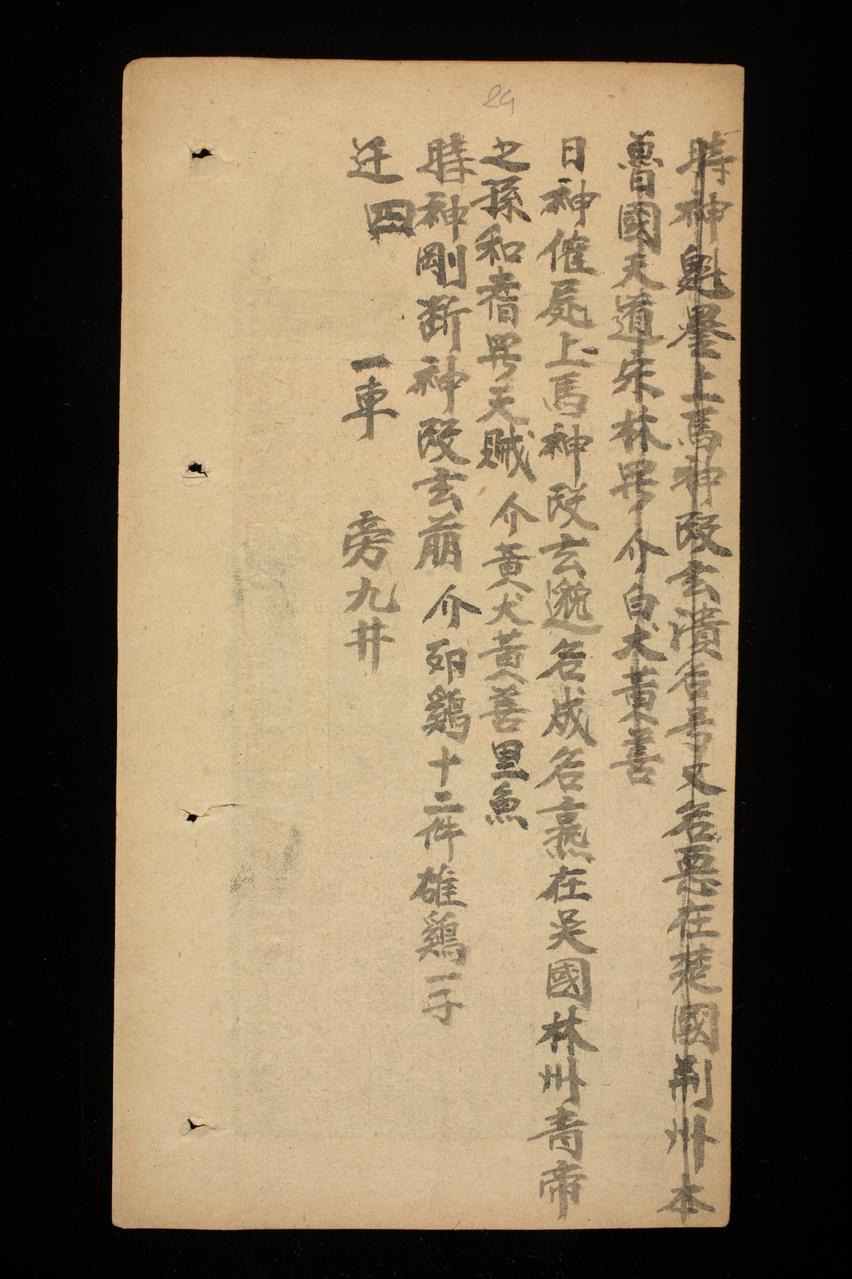 時神魁壘上馬神改玄瀆名吾又名惡在楚國荆州本
魯國天道宋林畢介白犬黄善
日神催屍上馬神改玄邈名成名燕在吴國林州青帝
之孫和耆畢天賊介黄犬黄善里魚
時神剛断神改玄萠介卵鷄十二件雄鷄一子
迁四 一車 旁九井
29